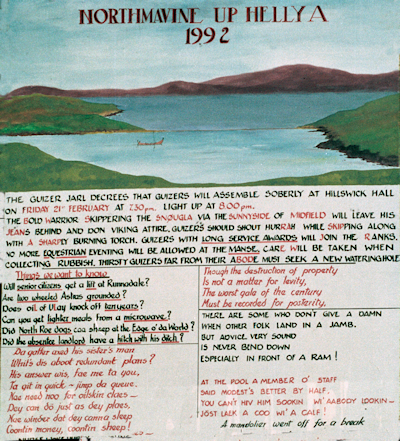 NORTHMAVINE UP HELLY A
1992
THE GUIZER JARL DECREES THAT GUIZERS WILL ASSEMBLE SOBERLY AT HILLSWICK HALL
ON FRIDAY 21ST FEBRUARY AT 7.30 p.m. LIGHT UP AT 8.00 p.m.
THE BOLD WARRIOR SKIPPERING THE SNØUGLA VIA THE SUNNYSIDE OF MIDFIELD WILL LEAVE HIS
JEANS BEHIND AND DON VIKING ATTIRE. GUIZERS SHOULD SHOUT HURRAH WHILE SKIPPING ALONG
WITH A SHARPLY BURNING TORCH. GUIZERS WITH LONG SERVICE AWARDS WILL JOIN THE RANKS.
NO MORE EQUESTRIAN EVENTING WILL BE ALLOWED AT THE MANSE. CARE WILL BE TAKEN WHEN
COLLECTING RUBBISH. THIRSTY GUIZERS FAR FROM THEIR ABODE MUST SEEK A NEW WATERINGHOLE
Things we want to know
Will senior citizens get a lift at Runnadale?
Are two wheeled Astras grounded?
Does oil of Ulay knock off ten years?
Can you get lighter meals from a microwave?
Did North Roe dogs caa sheep at the Edge o'da World?
Did the absentee landlord have a hitch with his ditch?
Da gaffer axed his sister's man
Whit's dis aboot redundant plans?
His answer wis, fae me ta you,
Ta git in quick – jimp da queue.
Nae need noo for oilskin claes –
Dey can do just as dey pleas,
Nae winder dat dey canna sleep
Coontin money, coontin sheep!
Though the destruction of property
Is not a matter for levity,
The worst gale of the century
Must be recorded for posterity.
THERE ARE SOME WHO DON'T GIVE A DAMN
WHEN OTHER FOLK LAND IN A JAMB.
BUT ADVICE VERY SOUND
IS NEVER BEND DOWN
ESPECIALLY IN FRONT OF A RAM!
AT THE POOL A MEMBER O' STAFF
SAID MODEST'S BETTER BY HALF,
YOU CAN'T HIV HIM SOOKIN WI'AABODY LOOKIN –
JUST LAEK A COO WI'A CALF!
A mandolier went off for a break